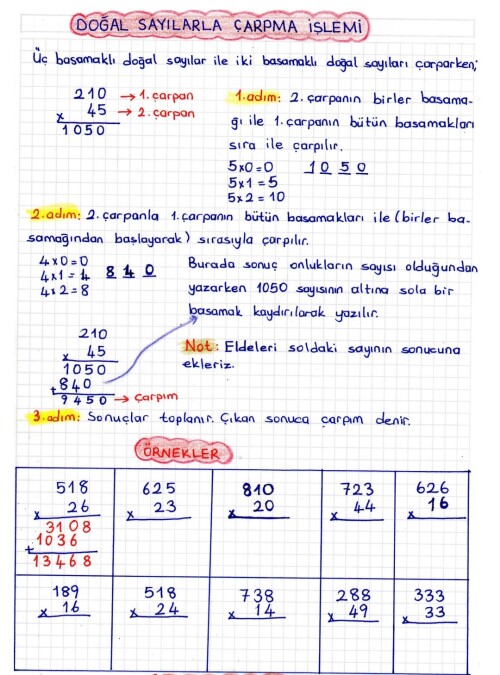 DOĞAL SAYILARLA ÇARPMA İŞLEMİ
Üç basamaklı doğal sayılar ile iki basamaklı doğal sayıları çarparken;
210 → 1. çarpan
x 45 → 2. çarpan
1050
1. adım: 2. çarpanın birler basama-
ğı ile 1. çarpanın bütün basamakları
sıra ile çarpılır.
5x0=0 1 0 5 0
5x1=5
5x2=10
2. adım: 2. çarpanla 1. çarpanın bütün basamakları ile (birler ba-
samağından başlayarak) sırasıyla çarpılır.
4x0=0
4x1=4 8 4 0
4x2=8
Burada sonuç onlukların sayısı olduğundan
yazarken 1050 sayısının altına sola bir
basamak kaydırılarak yazılır.
210
x 45
1050
+840
9450 → çarpım
Not: Eldeleri soldaki sayının sonucuna
ekleriz.
3. adım: Sonuçlar toplanır. Çıkan sonuca çarpım denir.
ÖRNEKLER
518 625 810 723 626
x 26 x 23 x 20 x 44 x 16
3108
+1036
13468
189 518 738 288 333
x 16 x 24 x 14 x 49 x 33